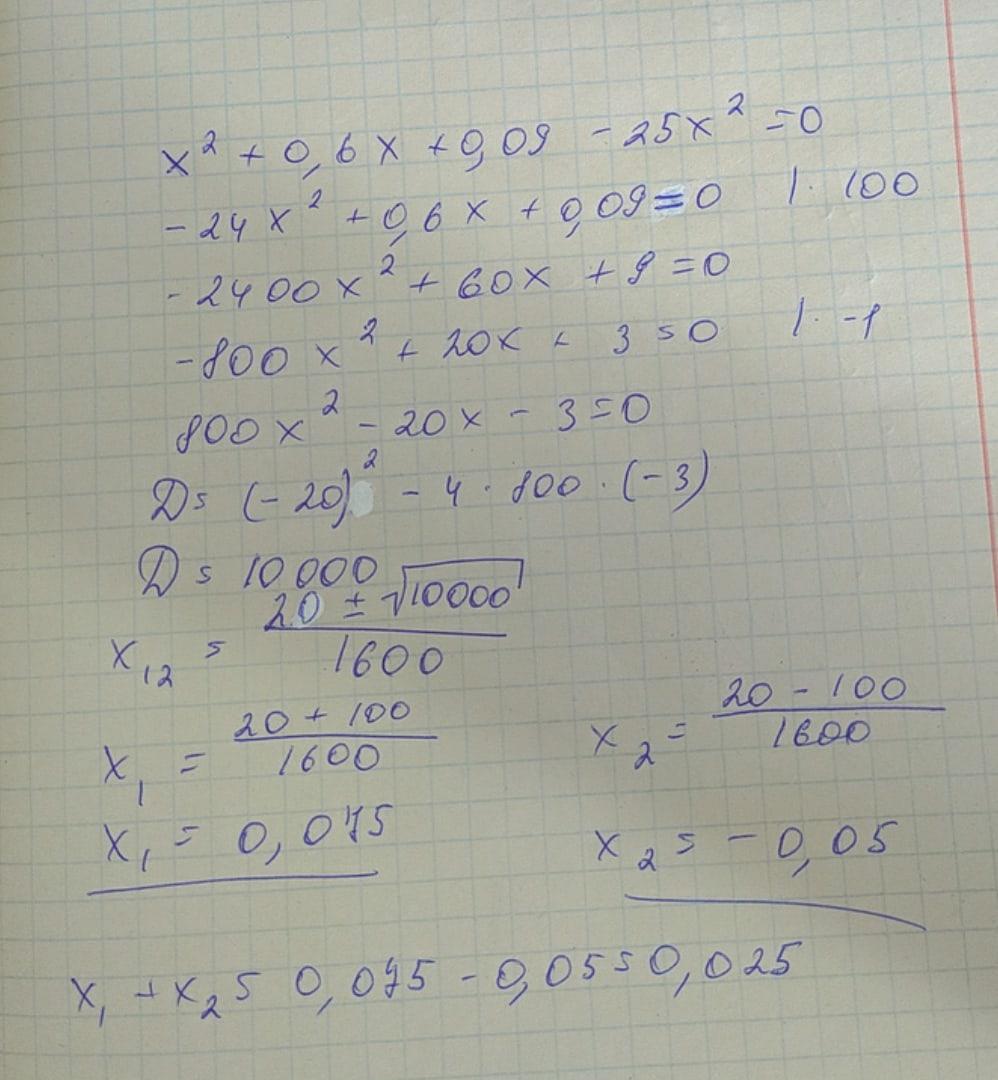 x² + 0,6x + 0,09 - 25x² = 0
-24x² + 0,6x + 0,09 = 0 | · 100
-2400x² + 60x + 9 = 0
-800x² + 20x + 3 = 0 | · -1
800x² - 20x - 3 = 0
D = (-20)² - 4 · 800 · (-3)
D = 10 000
x₁₂ = (20 ± √10000) / 1600
x₁ = (20 + 100) / 1600 x₂ = (20 - 100) / 1600
x₁ = 0,075 x₂ = -0,05
x₁ + x₂ = 0,075 - 0,05 = 0,025